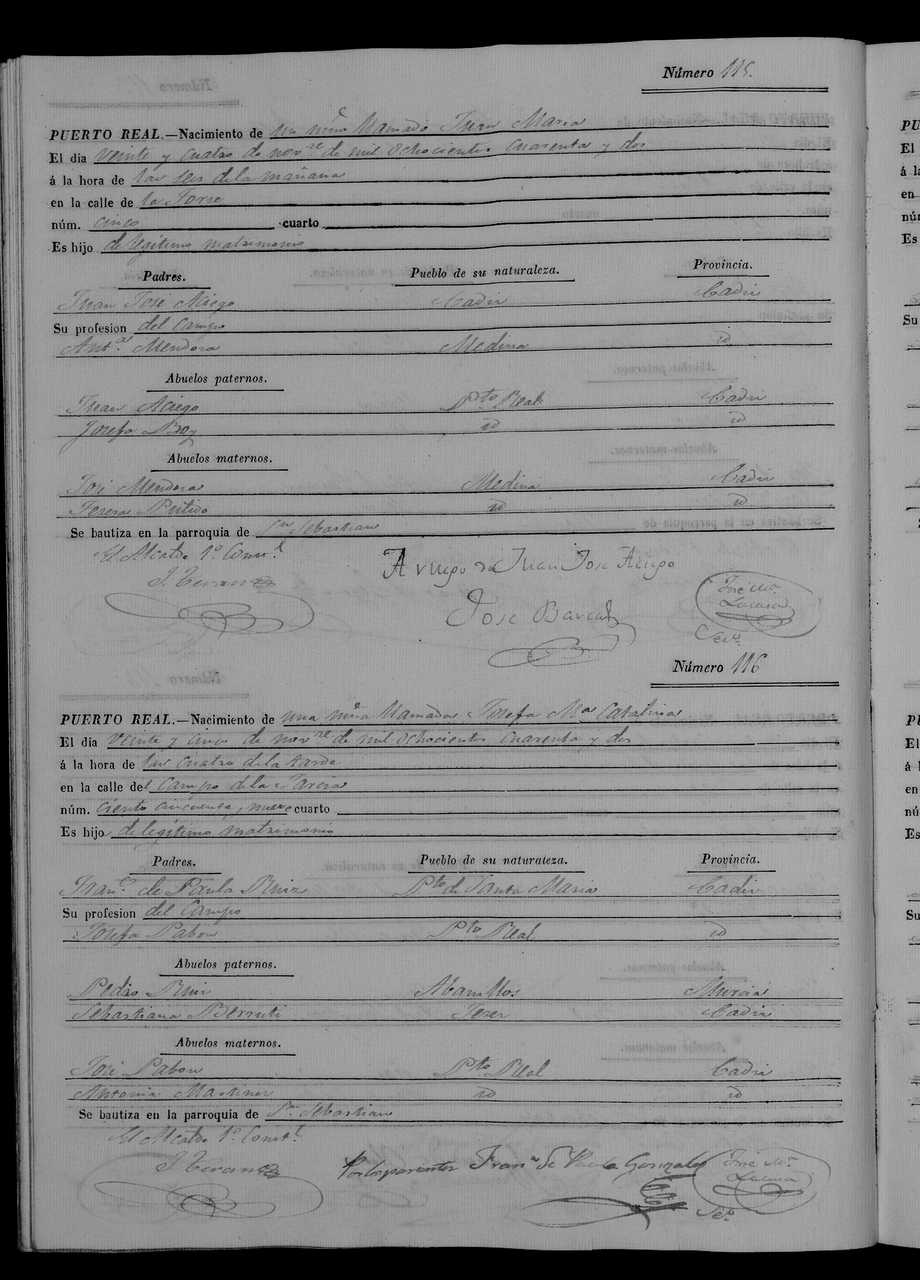 Número 115.
PUERTO REAL.—Nacimiento de un niño llamado Juan Maria
El dia veinte y cuatro de novre de mil ochocientos cuarenta y dos
á la hora de las seis de la mañana
en la calle de la Torre
núm. cinco cuarto
Es hijo de legítimo matrimonio
Padres. Pueblo de su naturaleza. Provincia.
Juan José Ariego Cadiz Cadiz
Su profesion del Campo
Anta Mendoza Medina id
Abuelos paternos.
Juan Ariego Pto Real Cadiz
Josefa id id
Abuelos maternos.
José Mendoza Medina Cadiz
Teresa id id
Se bautiza en la parroquia de Sn Sebastian
El Alcalde 1º Constl
A ruego de Juan José Ariego
José Mª
J. Teran
José
Secº
Número 116
PUERTO REAL.—Nacimiento de una niña llamada Josefa Ma Catalina
El dia veinte y cinco de novre de mil ochocientos cuarenta y dos
á la hora de las cuatro de la tarde
en la calle del Campo de la
núm. ciento cincuenta y nueve cuarto
Es hijo de legítimo matrimonio
Padres. Pueblo de su naturaleza. Provincia.
Franco de Paula Ruiz Pto de Santa Maria Cadiz
Su profesion del Campo
Josefa Pabon Pto Real id
Abuelos paternos.
Pedro Ruiz Murcia
Sebastiana Berruti Jerez Cadiz
Abuelos maternos.
José Pabon Pto Real Cadiz
Antonia Martinez id id
Se bautiza en la parroquia de Sn Sebastian
El Alcalde 1º Constl
J. Teran
Franco de Paula Gonzalez
José Mª
Secº